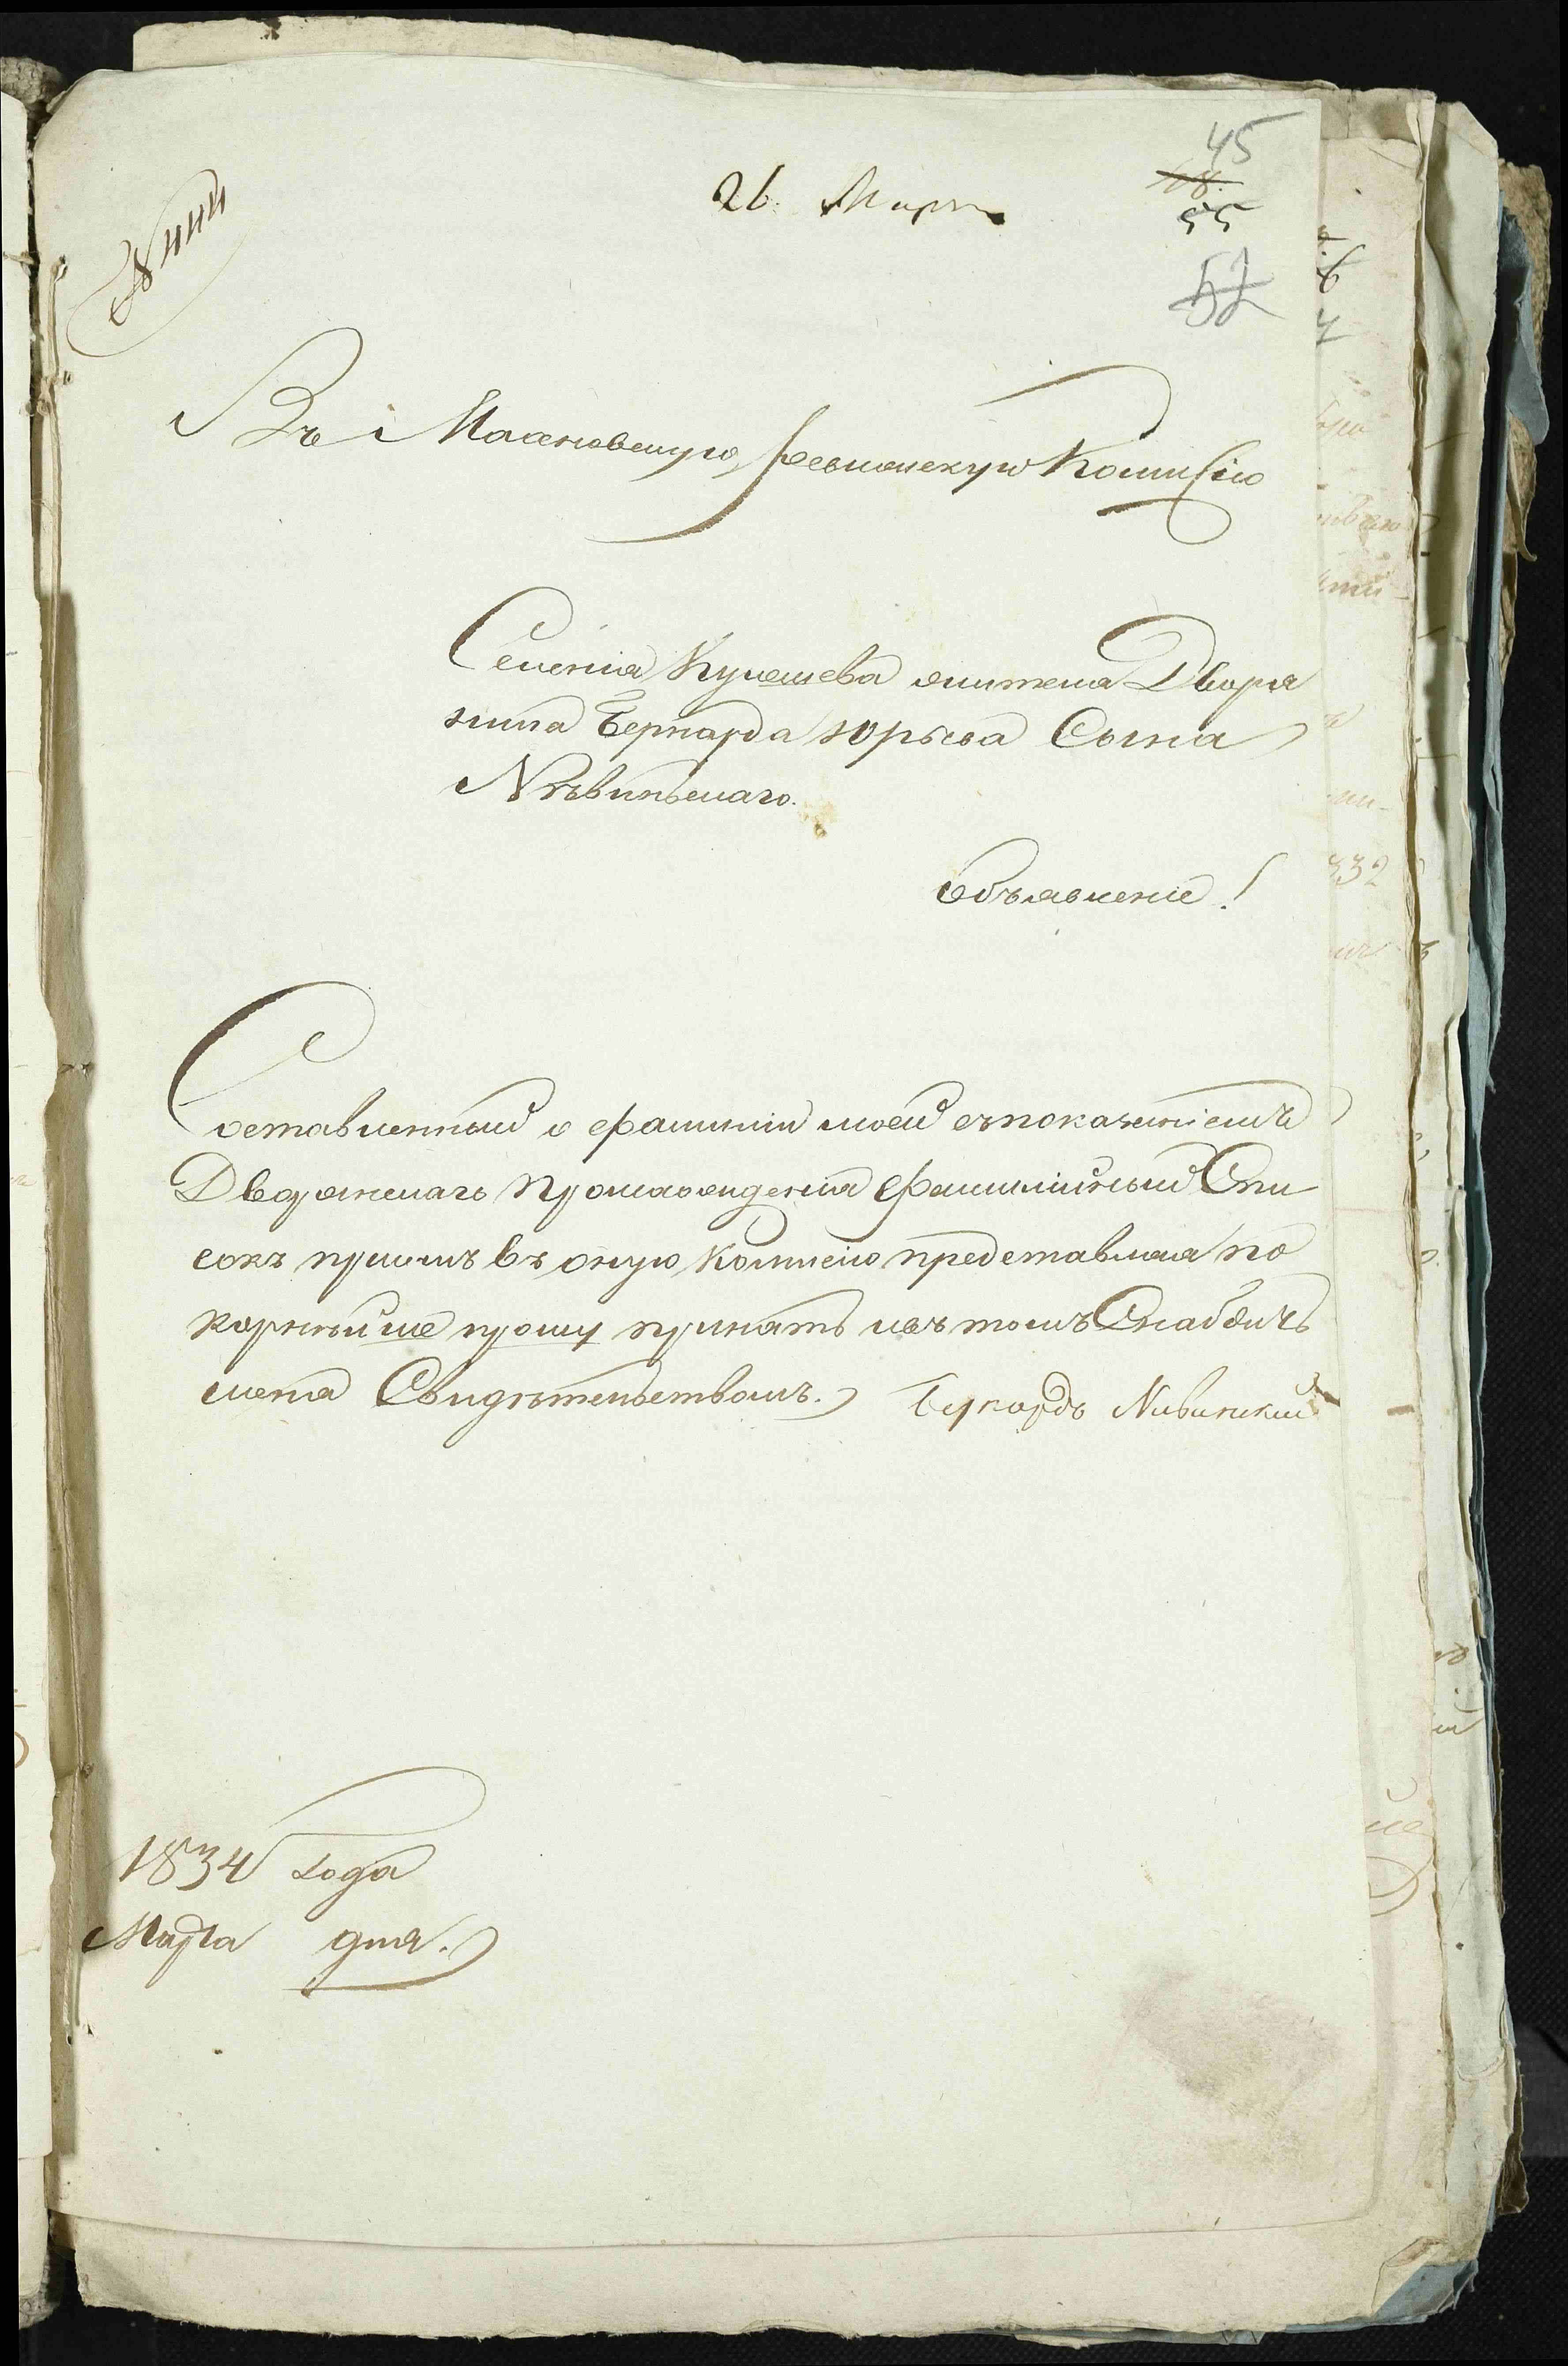 45
26. Марта
55
Въ Махновскую Ревизскую Комисію
Селенія Кулешева жителя Дворя
нина Бернарда Юрьева Сына
Нѣвинскаго.
Объявленіе!
Составленный о фамиліи моей съ показаніемъ
Дворянскаго происхожденія фамилійный Спи
сокъ присемъ въ оную комисію представляя по
корнѣйше прошу принять и въ томъ Снабдить
меня Свидѣтельствомъ. Бернардъ Нивинский
1834 Года
Марта дня.